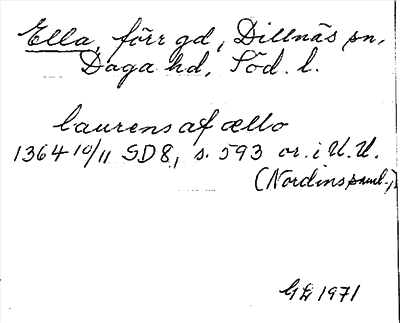 Ella, förr gd, Dillnäs sn,
Daga hd, Söd. l.
laurens af ællo
1364 10/11 SD8, s. 593 or. i U.U.
(Nordins saml.)
GL 1971